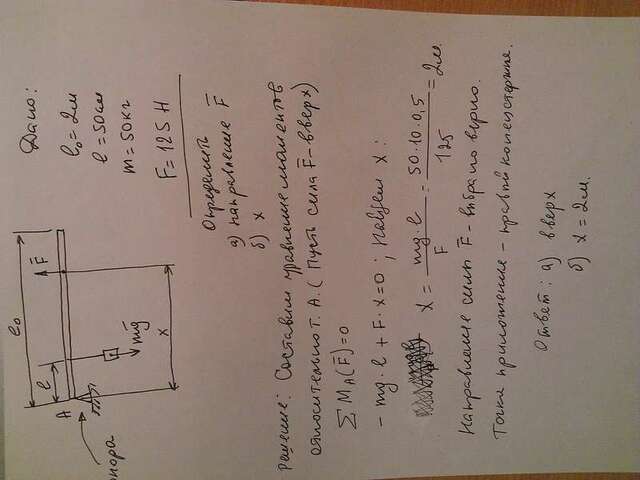 Дано:
l₀ = 2м
l = 50см
m = 50кг
F = 125 Н
Определить
а) направление F̄
б) x
l₀
l
A
F̄
mḡ
x
опора
Решение: Составим уравнение моментов
относительно т. А. (Пусть сила F̄ - вверх)
∑ M_A(F̄)=0
- mg·l + F·x = 0 ; Найдем x:
x = mg·l / F = 50·10·0,5 / 125 = 2м.
Направление силы F̄ - выбрано верно.
Точка приложения - правый конец стержня.
Ответ: а) вверх
б) x = 2м.